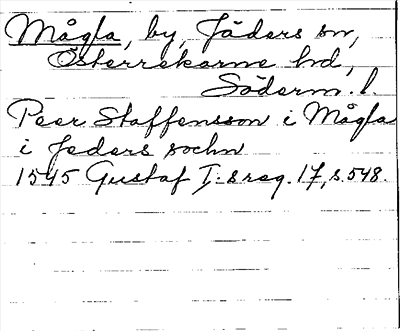 Mågla, by, Jäders sn,
Österrekarne hd,
Söderm. l.
Peer Staffensson i Mågla
i Jeders sochn
1545 Gustaf I:s reg. 17, s. 548.